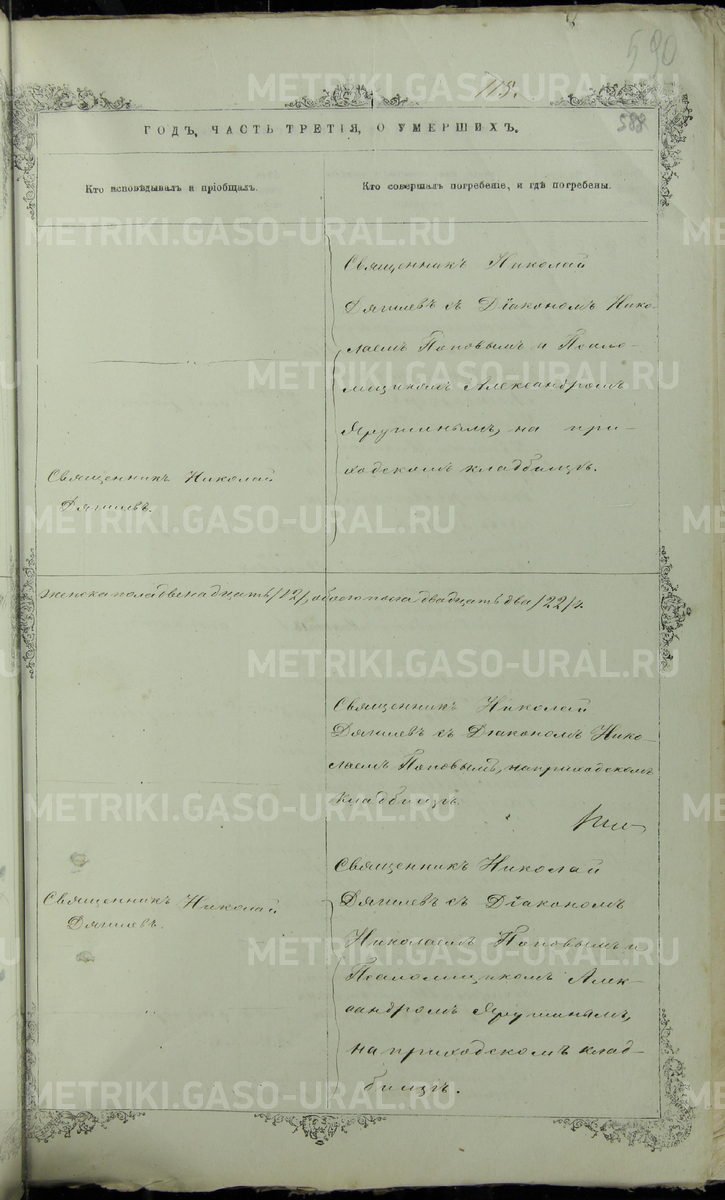 590
118.
588
ГОДЪ, ЧАСТЬ ТРЕТІЯ, О УМЕРШИХЪ.
Кто исповѣдывалъ и пріобщалъ.
Кто совершалъ погребеніе, и гдѣ погребены.
Священникъ Николай
Дягилевъ съ Діакономъ Нико-
лаемъ Поповымъ и Псало-
мщикомъ Александромъ
Ярушинымъ, на при-
ходскомъ кладбищѣ.
Священникъ Николай
Дягилевъ.
женска пола двенадцать /12/, обоего пола двадцать два /22/.
Священникъ Николай
Дягилевъ съ Діакономъ Нико-
лаемъ Поповымъ, на приходскомъ
кладбищѣ.
Священникъ Николай
Дягилевъ.
Священникъ Николай
Дягилевъ съ Діакономъ
Николаемъ Поповымъ и
Псаломщикомъ Алек-
сандромъ Ярушинымъ,
на приходскомъ клад-
бищѣ.
METRIKI.GASO-URAL.RU